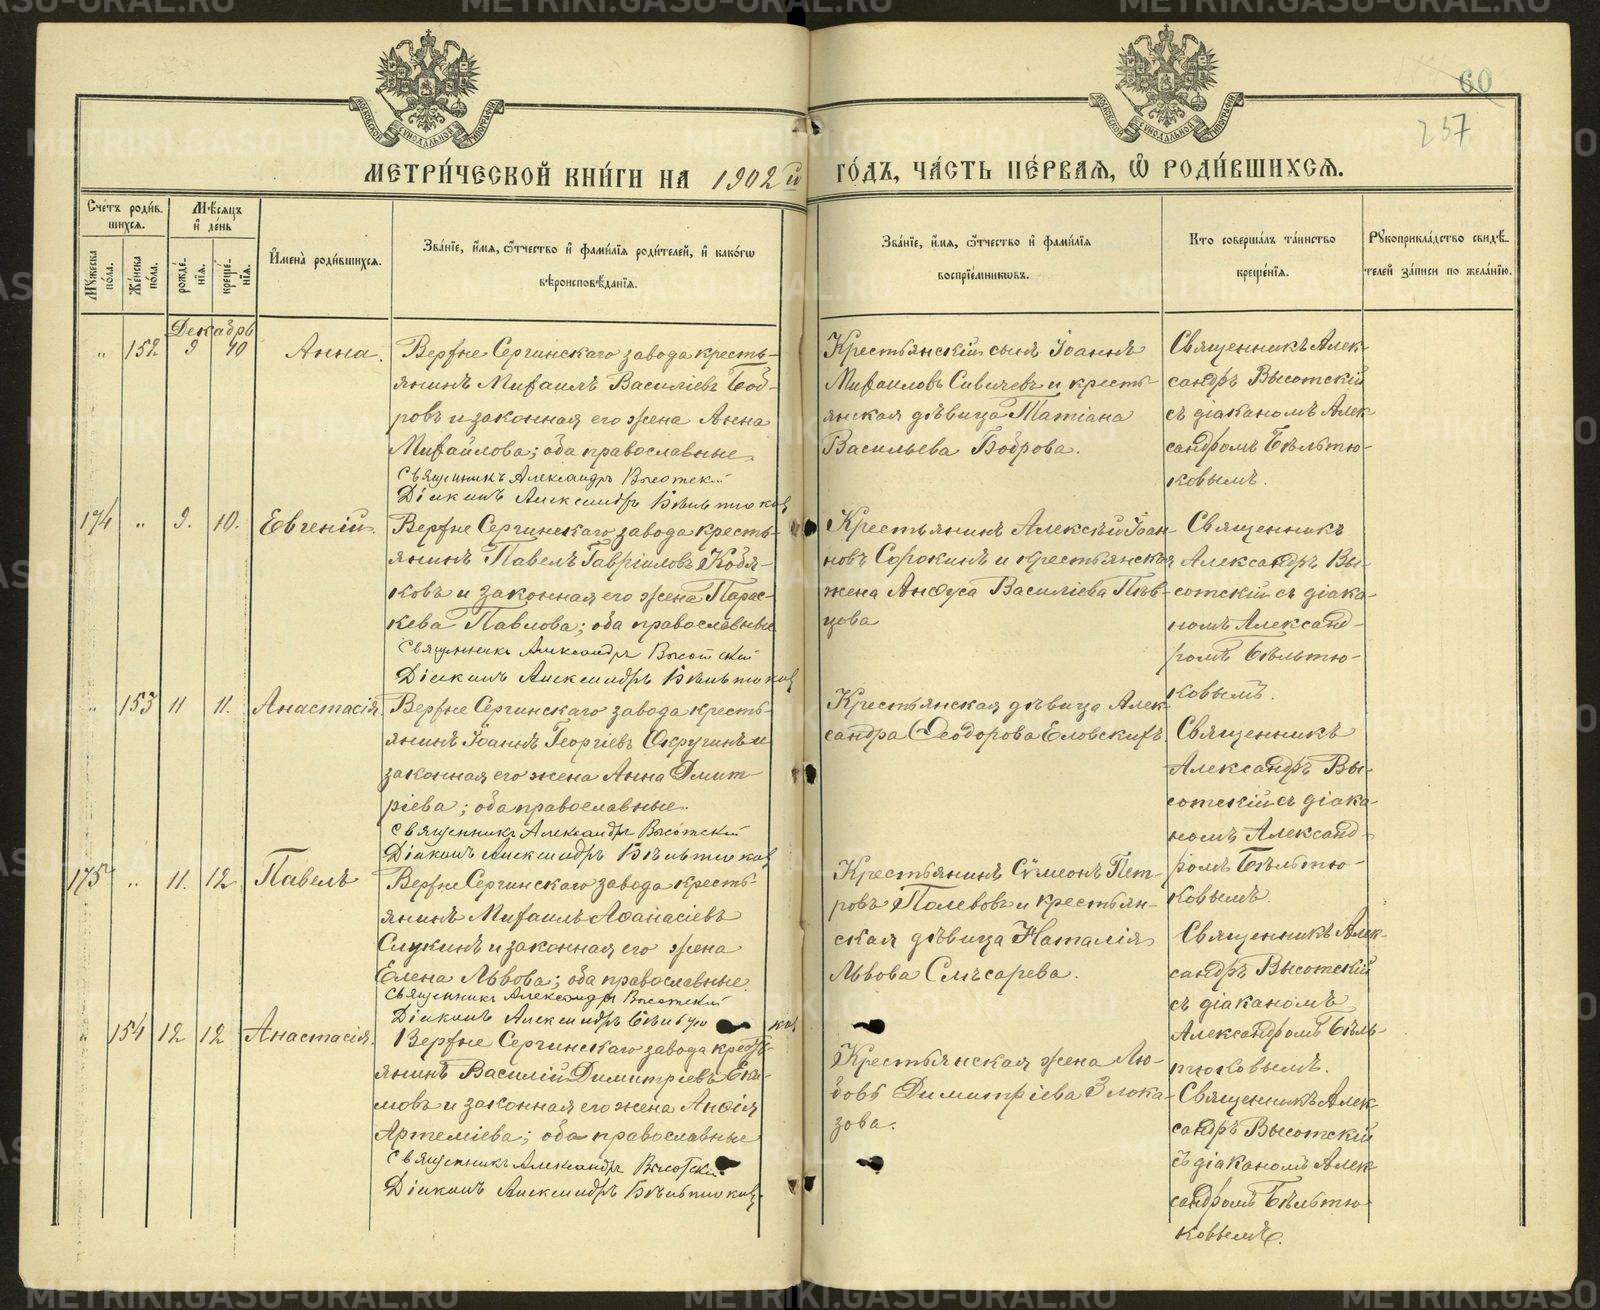 60
257
МЕТРИ́ЧЕСКОЙ КНИ́ГИ НА 1902й ГО́ДЪ, ЧА́СТЬ ПЕ́РВАЯ, Ѿ РОДИ́ВШИХСЯ.
Сче́тъ роди́в-
шихся.
Мѣ́сяцъ
и҆ де́нь
Мꙋ́жеска
по́ла.
Же́нска
по́ла.
рожде́-
нїя.
креще́-
нїя.
И҆мена̀ роди́вшихся.
Зва́нїе, и҆́мя, ѻ҆́тчество и҆ фами́лїя роди́телей, и҆ како́гѡ
вѣроисповѣ́данїя.
Зва́нїе, и҆́мя, ѻ҆́тчество и҆ фами́лїя
воспрїе́мникѡвъ.
Кто̀ соверша́лъ та́инство
креще́нїя.
Рꙋкоприкла́дство свидѣ́-
телей за́писи по жела́нїю.
Декабрь
" 152 9 10 Анна.
Верхне Сергинскаго завода кресть-
янинъ Михаилъ Василіевъ Боб-
ровъ и законная его жена Анна
Михайлова; оба православные.
Священникъ Александръ Высотскій
Діаконъ Александръ Бѣльтюковъ
Крестьянскій сынъ Іоаннъ
Михаиловъ Сивичевъ и кресть-
янская дѣвица Татіана
Васильева Боброва.
Священникъ Алек-
сандръ Высотскій
съ діакономъ Алек-
сандромъ Бѣльтю-
ковымъ.
174 " 9. 10. Евгеній.
Верхне Сергинскаго завода кресть-
янинъ Павелъ Гавріиловъ Кобя-
ковъ и законная его жена Парас-
кева Павлова; оба православные
Священникъ Александръ Высотскій
Діаконъ Александръ Бѣльтюковъ
Крестьянинъ Алексѣй Іоан-
новъ Сорокинъ и крестьянская
жена Анѳуса Василіева Пѣв-
цова
Священникъ
Александръ Вы-
сотскій съ діако-
номъ Александ-
ромъ Бѣльтю-
ковымъ.
" 153 11 11. Анастасія.
Верхне Сергинскаго завода кресть-
янинъ Іоаннъ Георгіевъ Округинъ и
законная его жена Анна Дмит-
ріева; оба православные.
Священникъ Александръ Высотскій
Діаконъ Александръ Бѣльтюковъ
Крестьянская дѣвица Алек-
сандра Ѳеодорова Еловскихъ.
Священникъ
Александръ Вы-
сотскій съ діако-
номъ Александ-
ромъ Бѣльтю-
ковымъ.
175 " 11. 12 Павелъ
Верхне Сергинскаго завода кресть-
янинъ Михаилъ Аѳанасіевъ
Слукинъ и законная его жена
Елена Львова; оба православные.
Священникъ Александръ Высотскій
Діаконъ Александръ Бѣльтюковъ
Крестьянинъ Сѵмеонъ Пет-
ровъ Полевовъ и крестьян-
ская дѣвица Наталія
Львова Слѣсарева.
Священникъ Алек-
сандръ Высотскій
съ діакономъ
Александромъ Бѣль-
тюковымъ.
" 154 12 12 Анастасія.
Верхне Сергинскаго завода кресть-
янинъ Василій Димитріевъ Еки-
мовъ и законная его жена Анѳія
Артеміева; оба православные
Священникъ Александръ Высотскій
Діаконъ Александръ Бѣльтюковъ.
Крестьянская жена Лю-
бовь Димитріева Злока-
зова.
Священникъ Алек-
сандръ Высотскій
съ діакономъ Алек-
сандромъ Бѣльтю-
ковымъ.
METRIKI.GASO-URAL.RU